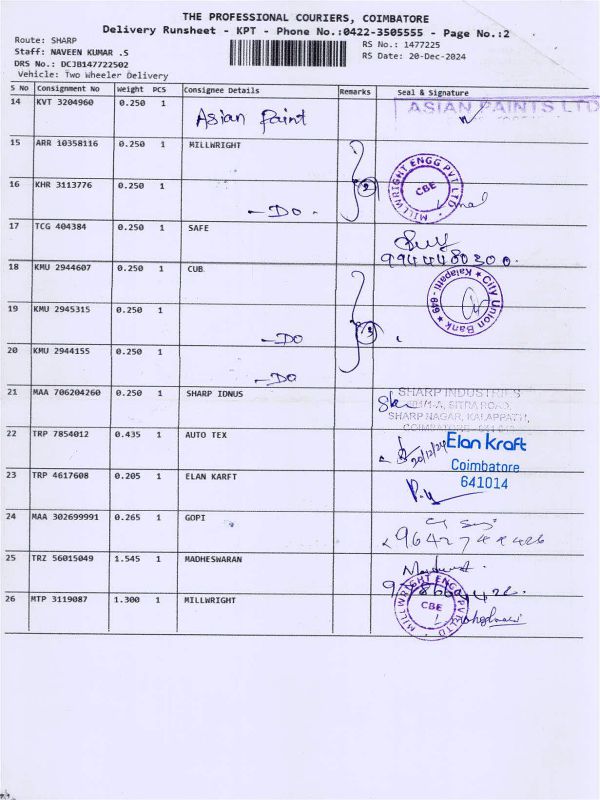 THE PROFESSIONAL COURIERS, COIMBATORE
Delivery Runsheet - KPT - Phone No.:0422-3505555 - Page No.:2
Route: SHARP
RS No.: 1477225
Staff: NAVEEN KUMAR .S
RS Date: 20-Dec-2024
DRS No.: DCJB147722502
Vehicle: Two Wheeler Delivery
S No Consignment No Weight PCS Consignee Details Remarks Seal & Signature
14 KVT 3204960 0.250 1 Asian Paint ASIAN PAINTS LTD
15 ARR 10358116 0.250 1 MILLWRIGHT
MILLWRIGHT ENGG PVT LTD
CBE
16 KHR 3113776 0.250 1 - Do - 2
17 TCG 404384 0.250 1 SAFE
9944480300
18 KMU 2944607 0.250 1 CUB
City Union Bank
Kalapatti - 649
19 KMU 2945315 0.250 1 - Do 3
20 KMU 2944155 0.250 1 - Do
21 MAA 706204260 0.250 1 SHARP IDNUS SHARP INDUSTRIES
SITRA ROAD,
SHARP NAGAR, KALAPPATTI,
22 TRP 7854012 0.435 1 AUTO TEX 20/12/24 Elan Kraft
Coimbatore
641014
23 TRP 4617608 0.205 1 ELAN KARFT
24 MAA 302699991 0.265 1 GOPI
25 TRZ 56015049 1.545 1 MADHESWARAN
26 MTP 3119087 1.300 1 MILLWRIGHT
MILLWRIGHT ENGG PVT LTD
CBE